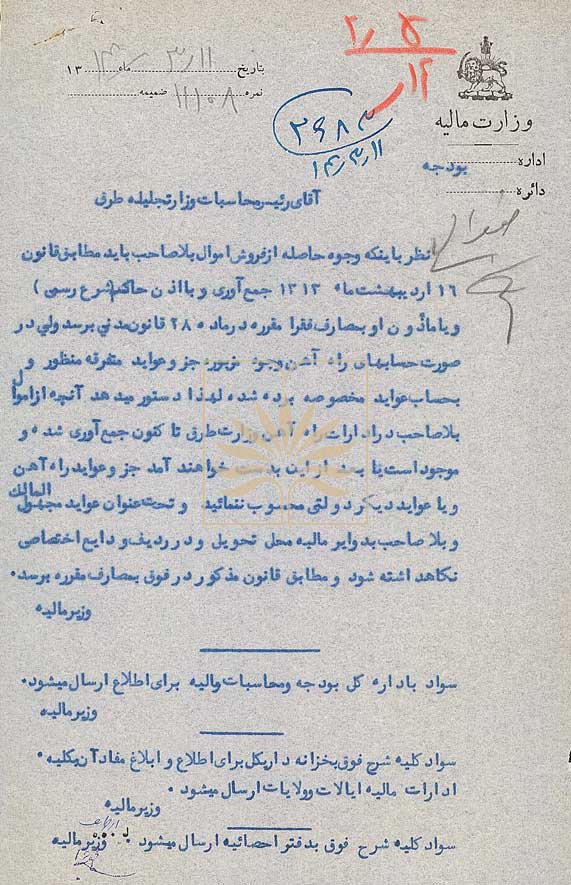 وزارت مالیه
اداره بودجه
دائره
تاریخ ۱۱ ر ۳ ماه ۱۳۱۴
نمره ۱۱۱۰۸ ضمیمه
۲۶۸۳
۱۴ر۳ر۱۱
۲ر۵
۱۲
آقای رئیس محاسبات وزارتجلیله طرق
نظر باینکه وجوه حاصله از فروش اموال بلاصاحب باید مطابق قانون
۱۶ اردیبهشت ماه ۱۳۱۳ جمع آوری و با اذن حاکم (شرع رسمی)
و یا ماذون او بمصارف فقرا مقرره در ماده ۲۸ قانون مدنی برسد ولی در
صورت حسابهای راه آهن وجوه مزبوره جزو عواید متفرقه منظور و
بحساب عواید مخصوصه برده شده لهذا دستور میدهد آنچه از اموال
بلاصاحب در ادارات راه آهن وزارت طرق تا کنون جمع آوری شده و
موجود است یا بعد از این بدست خواهند آمد جزو عواید راه آهن
و یا عواید دیگر دولتی محسوب ننمائید و تحت عنوان عواید مجهول المالک
و بلاصاحب بدوایر مالیه محل تحویل و در ردیف ودایع اختصاصی
نگاهداشته شود و مطابق قانون مذکور در فوق بمصارف مقرره برسد.
وزیر مالیه
سواد باداره کل بودجه ومحاسبات مالیه برای اطلاع ارسال میشود.
وزیر مالیه
سواد کلیه شرح فوق بخزانه داریکل برای اطلاع و ابلاغ مفاد آن بکلیه.
ادارات مالیه ایالات وولایات ارسال میشود.
وزیر مالیه
سواد کلیه شرح فوق بدفتر احصائیه ارسال میشود وزیر مالیه